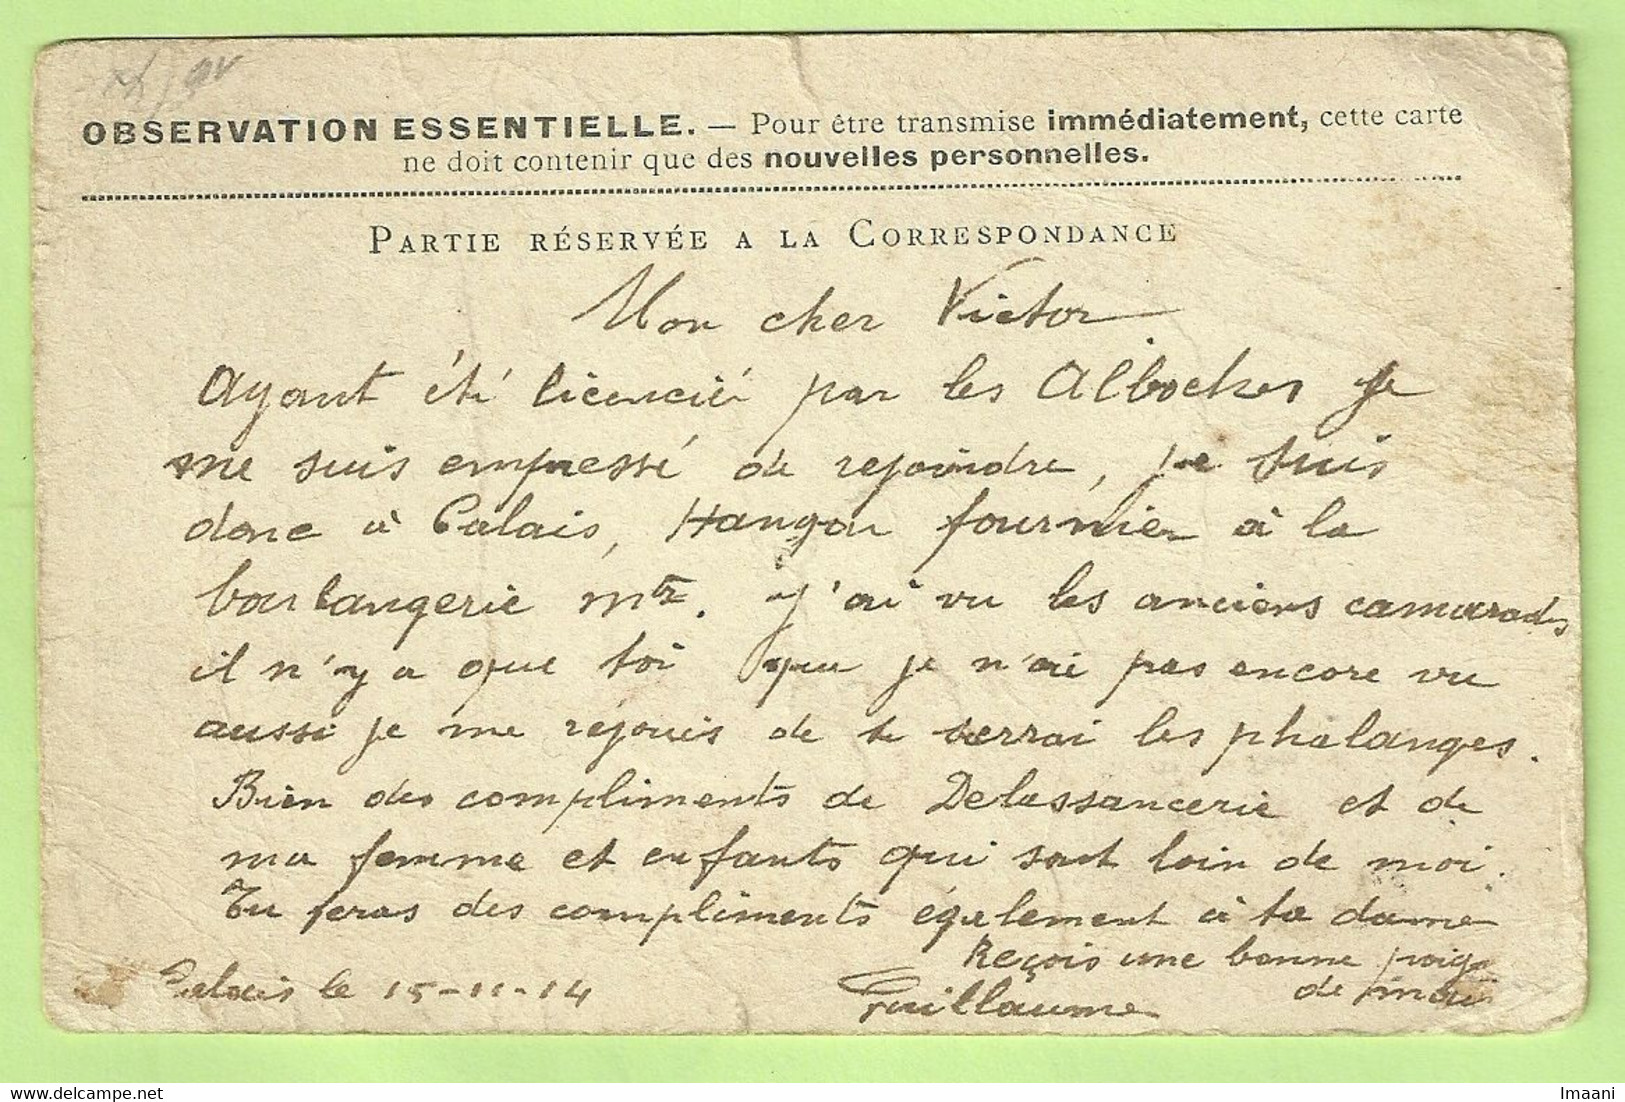 OBSERVATION ESSENTIELLE. — Pour être transmise immédiatement, cette carte
ne doit contenir que des nouvelles personnelles.
PARTIE RÉSERVÉE A LA CORRESPONDANCE
Mon cher Victor
Ayant été licencié par les Alboches je
me suis empressé de rejoindre, je suis
donc à Calais, Hangar fournier à la
boulangerie mre. J'ai vu les anciens camarades
il n'y a que toi que je n'ai pas encore vu
aussi je me réjouis de te serrai les phalanges.
Bien des compliments de Delessancerie et de
ma femme et enfants qui sont loin de moi.
Tu feras des compliments également à ta dame
Reçois une bonne poig
de main
Calais le 15-11-14
Guillaume
Imaani